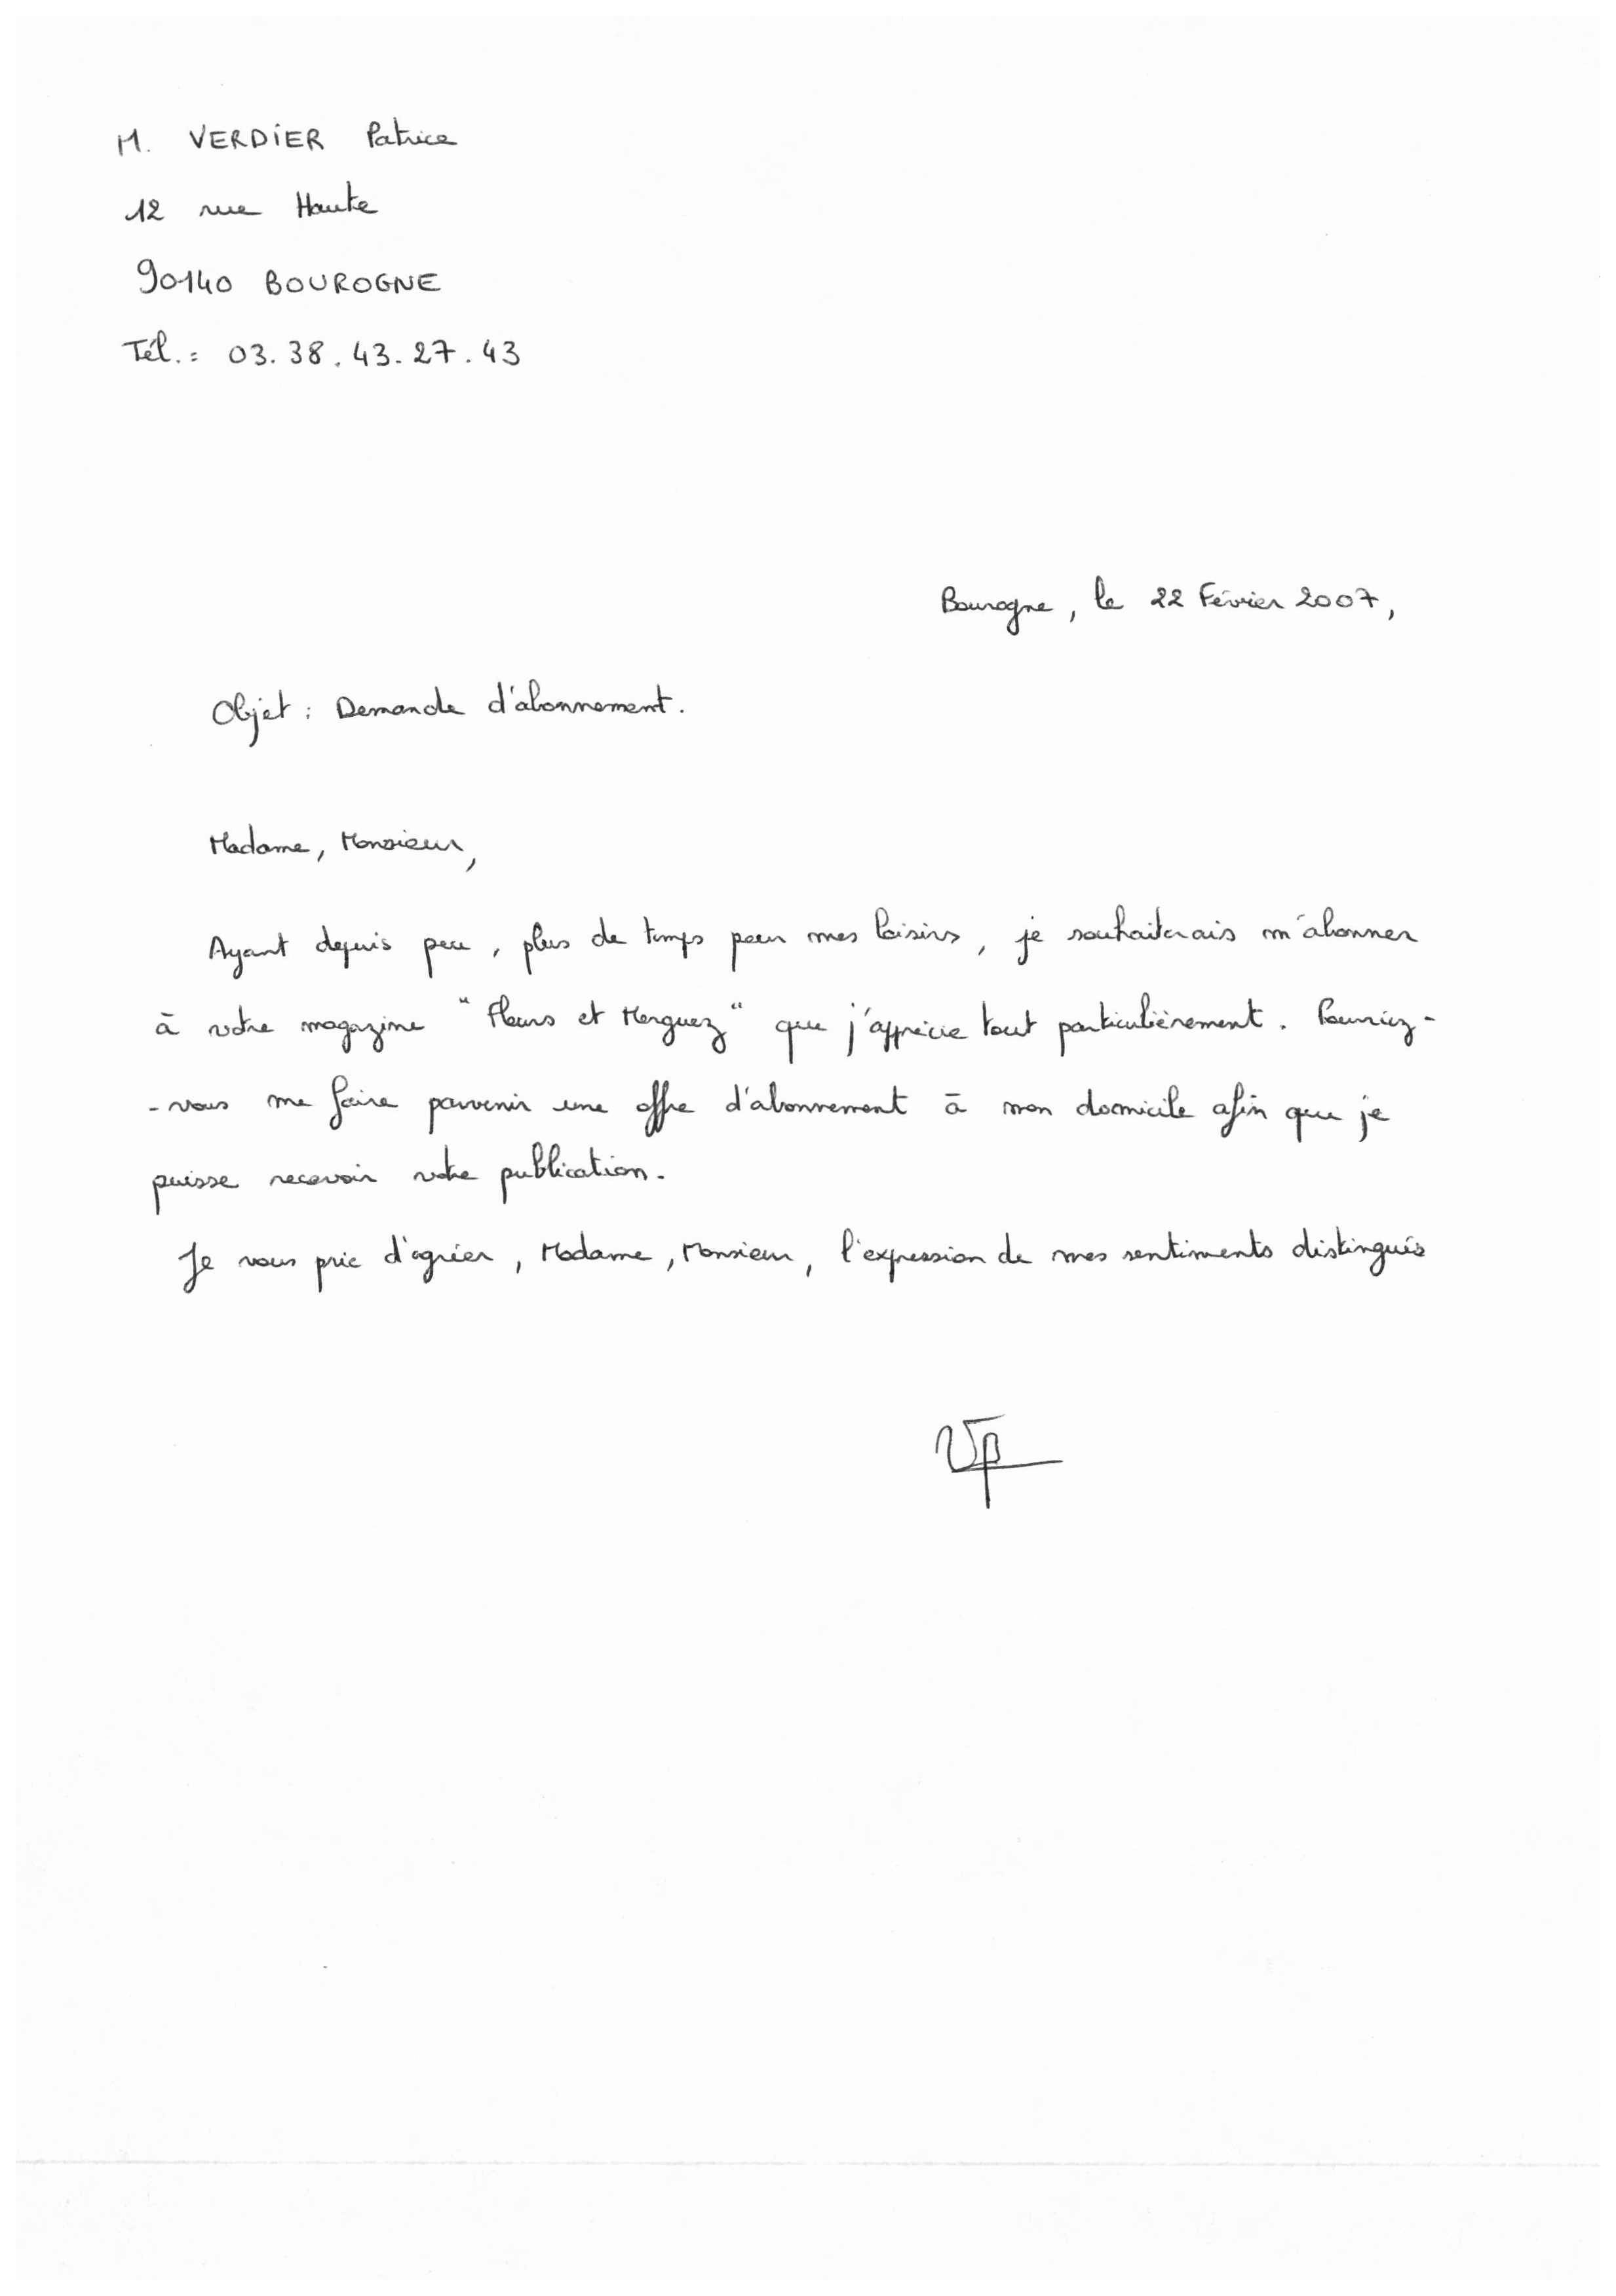 M. VERDIER Patrice
12 rue Haute
90140 BOUROGNE
Tél. : 03.38.43.27.43
Bourogne, le 22 Février 2007,
Objet : Demande d'abonnement.
Madame, Monsieur,
Ayant depuis peu, plus de temps pour mes loisirs, je souhaiterais m'abonner
à votre magazine "Fleurs et Merguez" que j'apprécie tout particulièrement. Pourriez-
-vous me faire parvenir une offre d'abonnement à mon domicile afin que je
puisse recevoir votre publication.
Je vous prie d'agréer, Madame, Monsieur, l'expression de mes sentiments distingués
VP